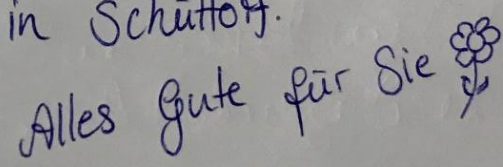 in Schüttorf.
Alles Gute für Sie